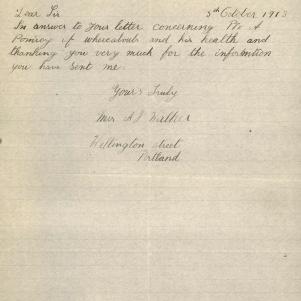 Dear Sir 5th October 1918
In answer to your letter concerning Pte A
Pomroy if whereabouts and his health and
thanking you very much for the information
you have sent me.
Yours Truly
Mrs A J Walker
Wellington Street
Portland